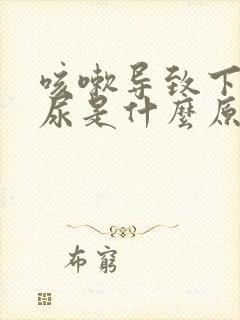 咳嗽导致下
尿是什麼原
布窮